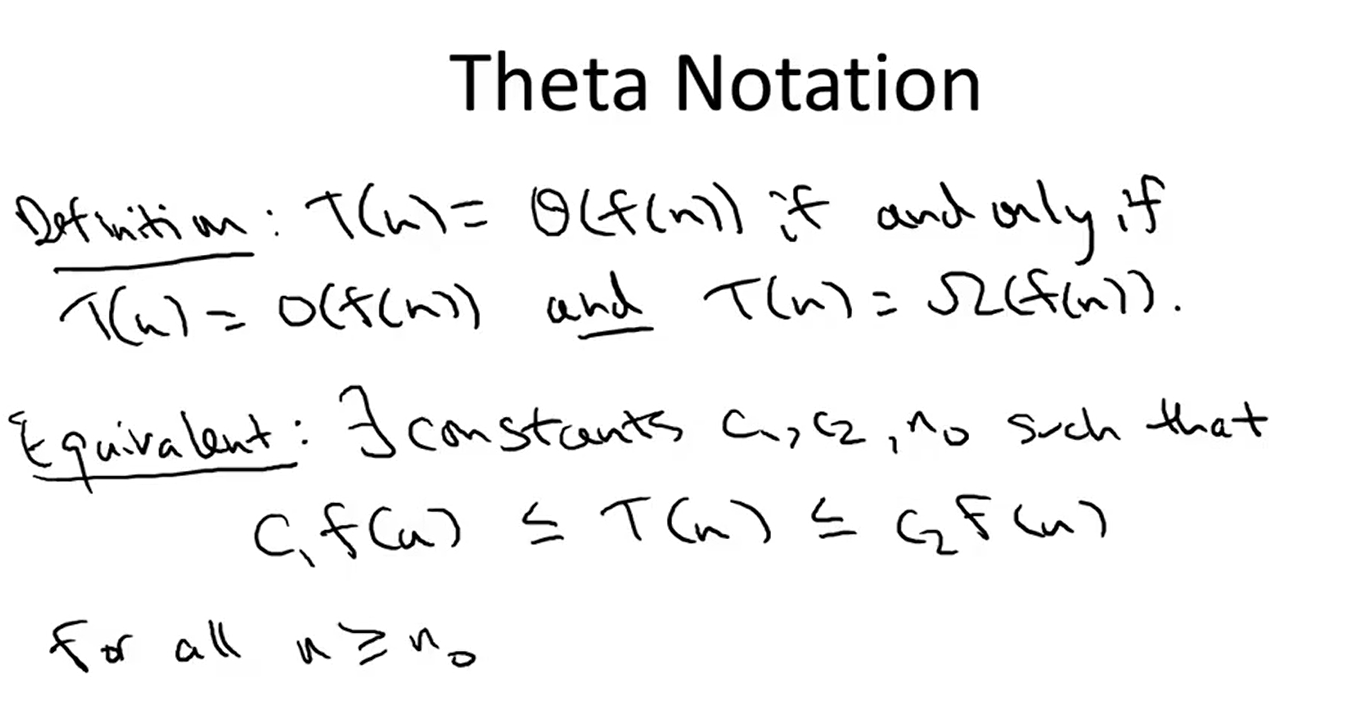 Theta Notation
Definition: T(n) = Θ(f(n)) if and only if
T(n) = O(f(n)) and T(n) = Ω(f(n)).
Equivalent: ∃ constants c₁, c₂, n₀ such that
c₁f(n) ≤ T(n) ≤ c₂f(n)
for all n ≥ n₀